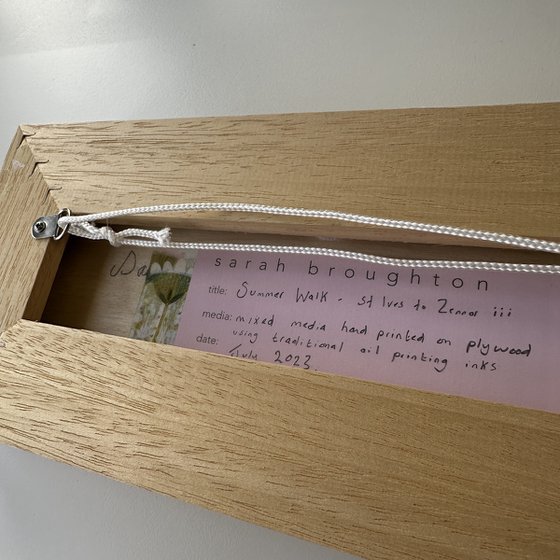 sarah broughton
title: Summer Walk - St Ives to Zennor iii
media: mixed media hand printed on plywood
using traditional oil printing inks
date: July 2023.